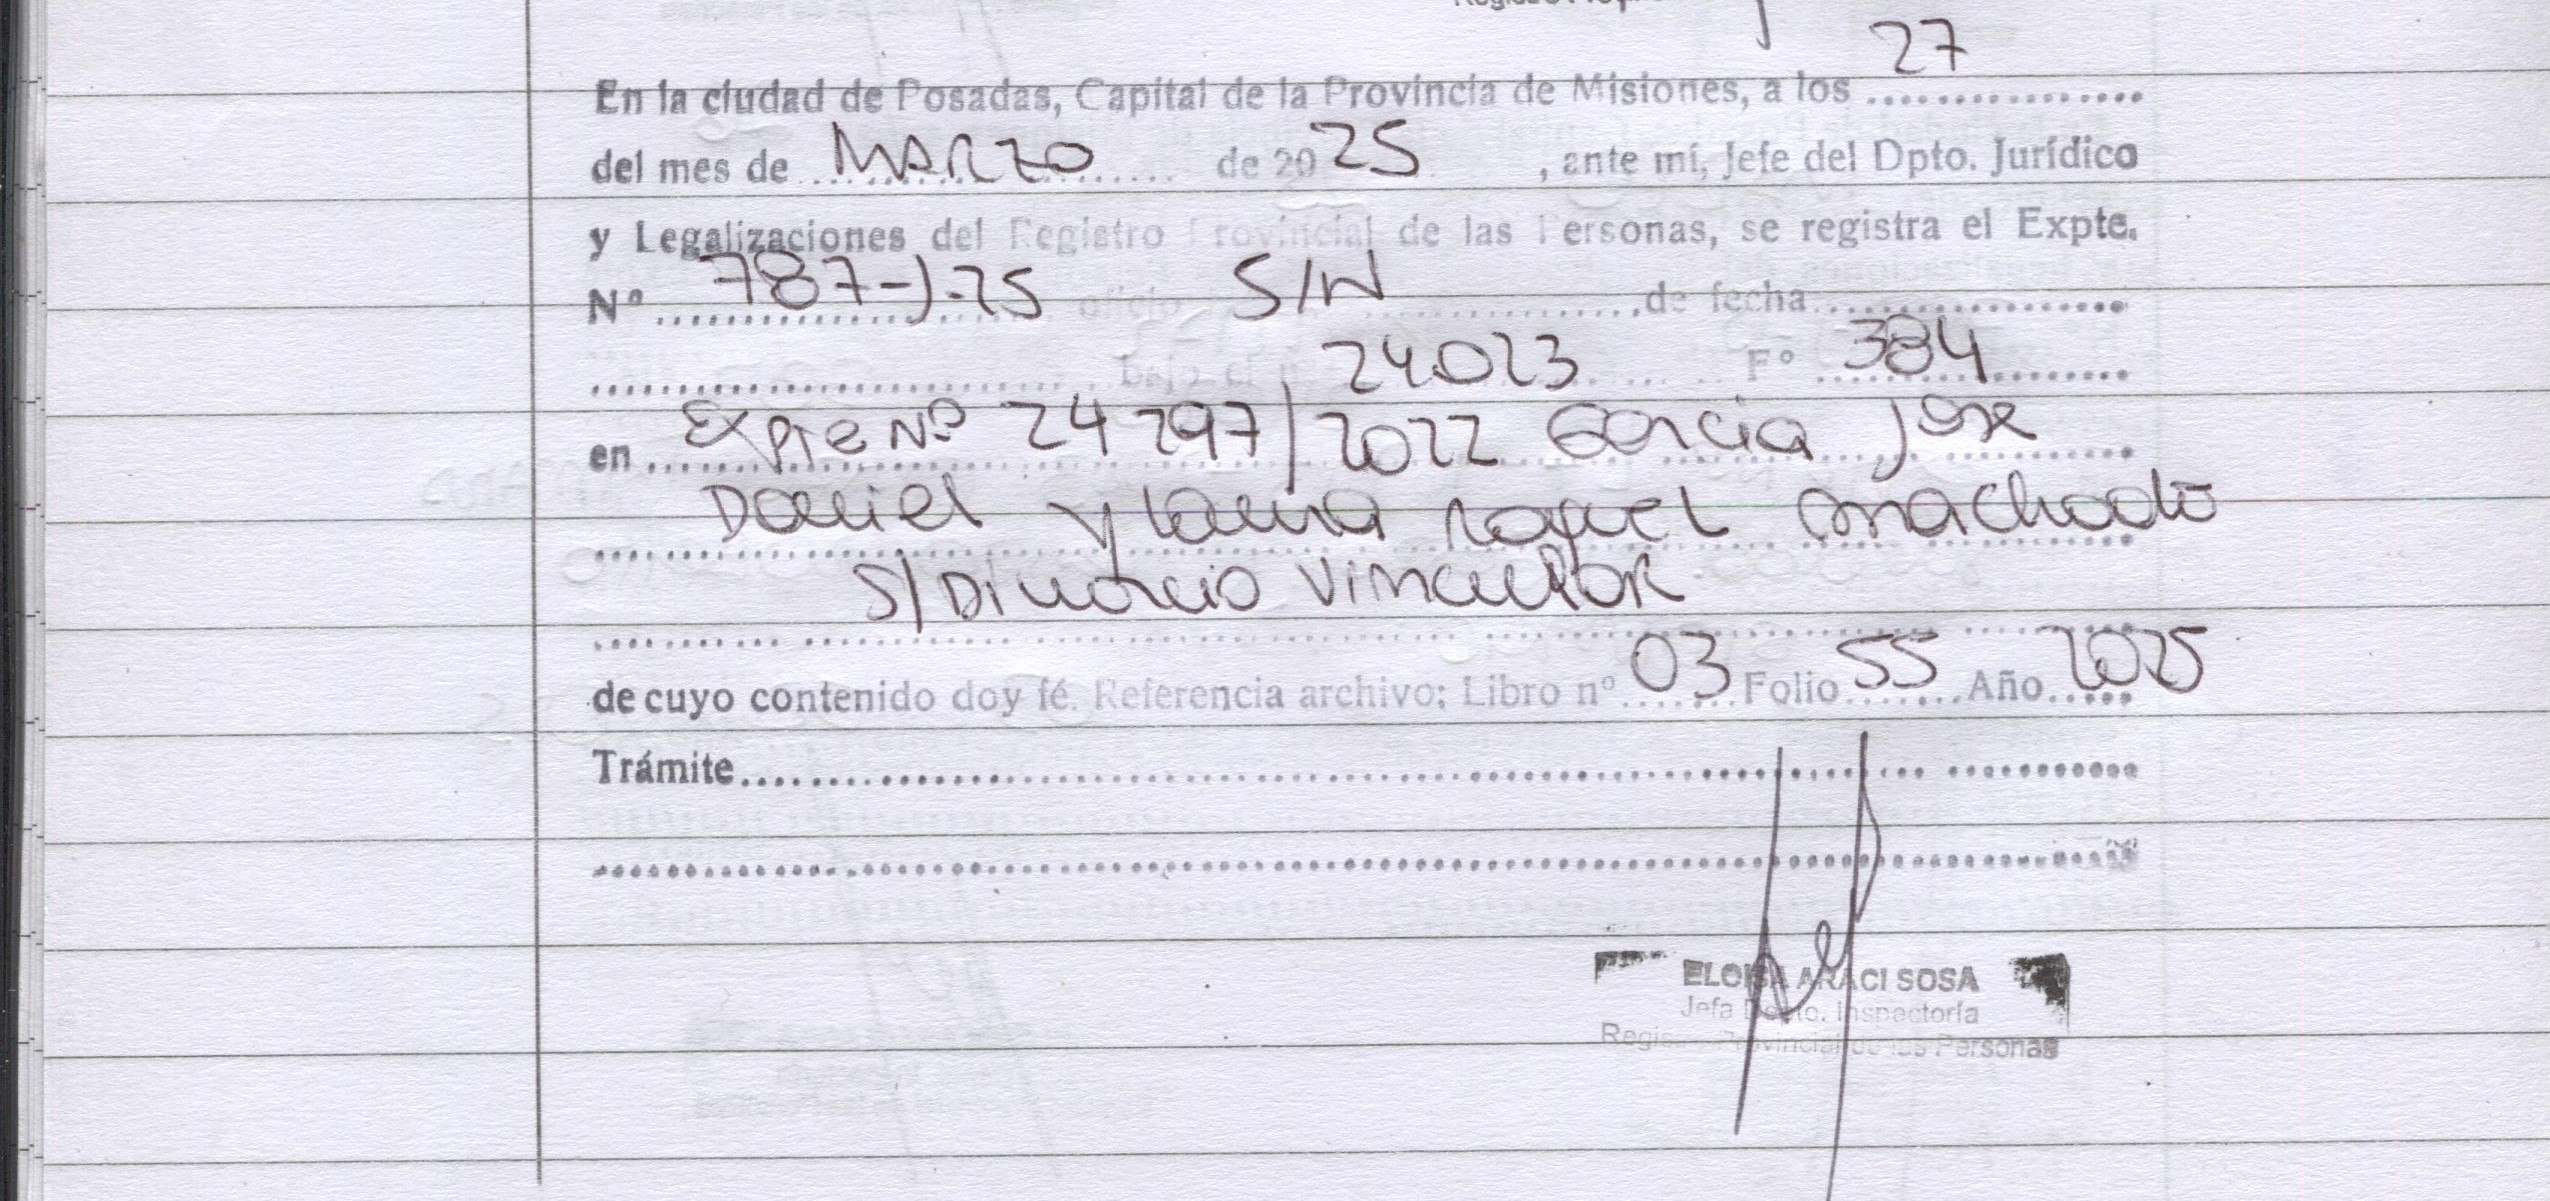 En la ciudad de Posadas, Capital de la Provincia de Misiones, a los 27
del mes de MARZO de 2025, ante mí, Jefe del Dpto. Jurídico
y Legalizaciones del Registro Provincial de las Personas, se registra el Expte.
Nº 787-J-25 oficio S/N de fecha
bajo el nº 24.023 Fº 384
en Expte Nº 24297/2022 Garcia Jose
Daniel y Laura Raquel Machado
S/Divorcio Vincular
de cuyo contenido doy fé. Referencia archivo: Libro nº 03 Folio 55 Año 2025
Trámite
ELOISA ARACI SOSA
Jefa Dpto. Inspectoría
Registro Provincial de las Personas